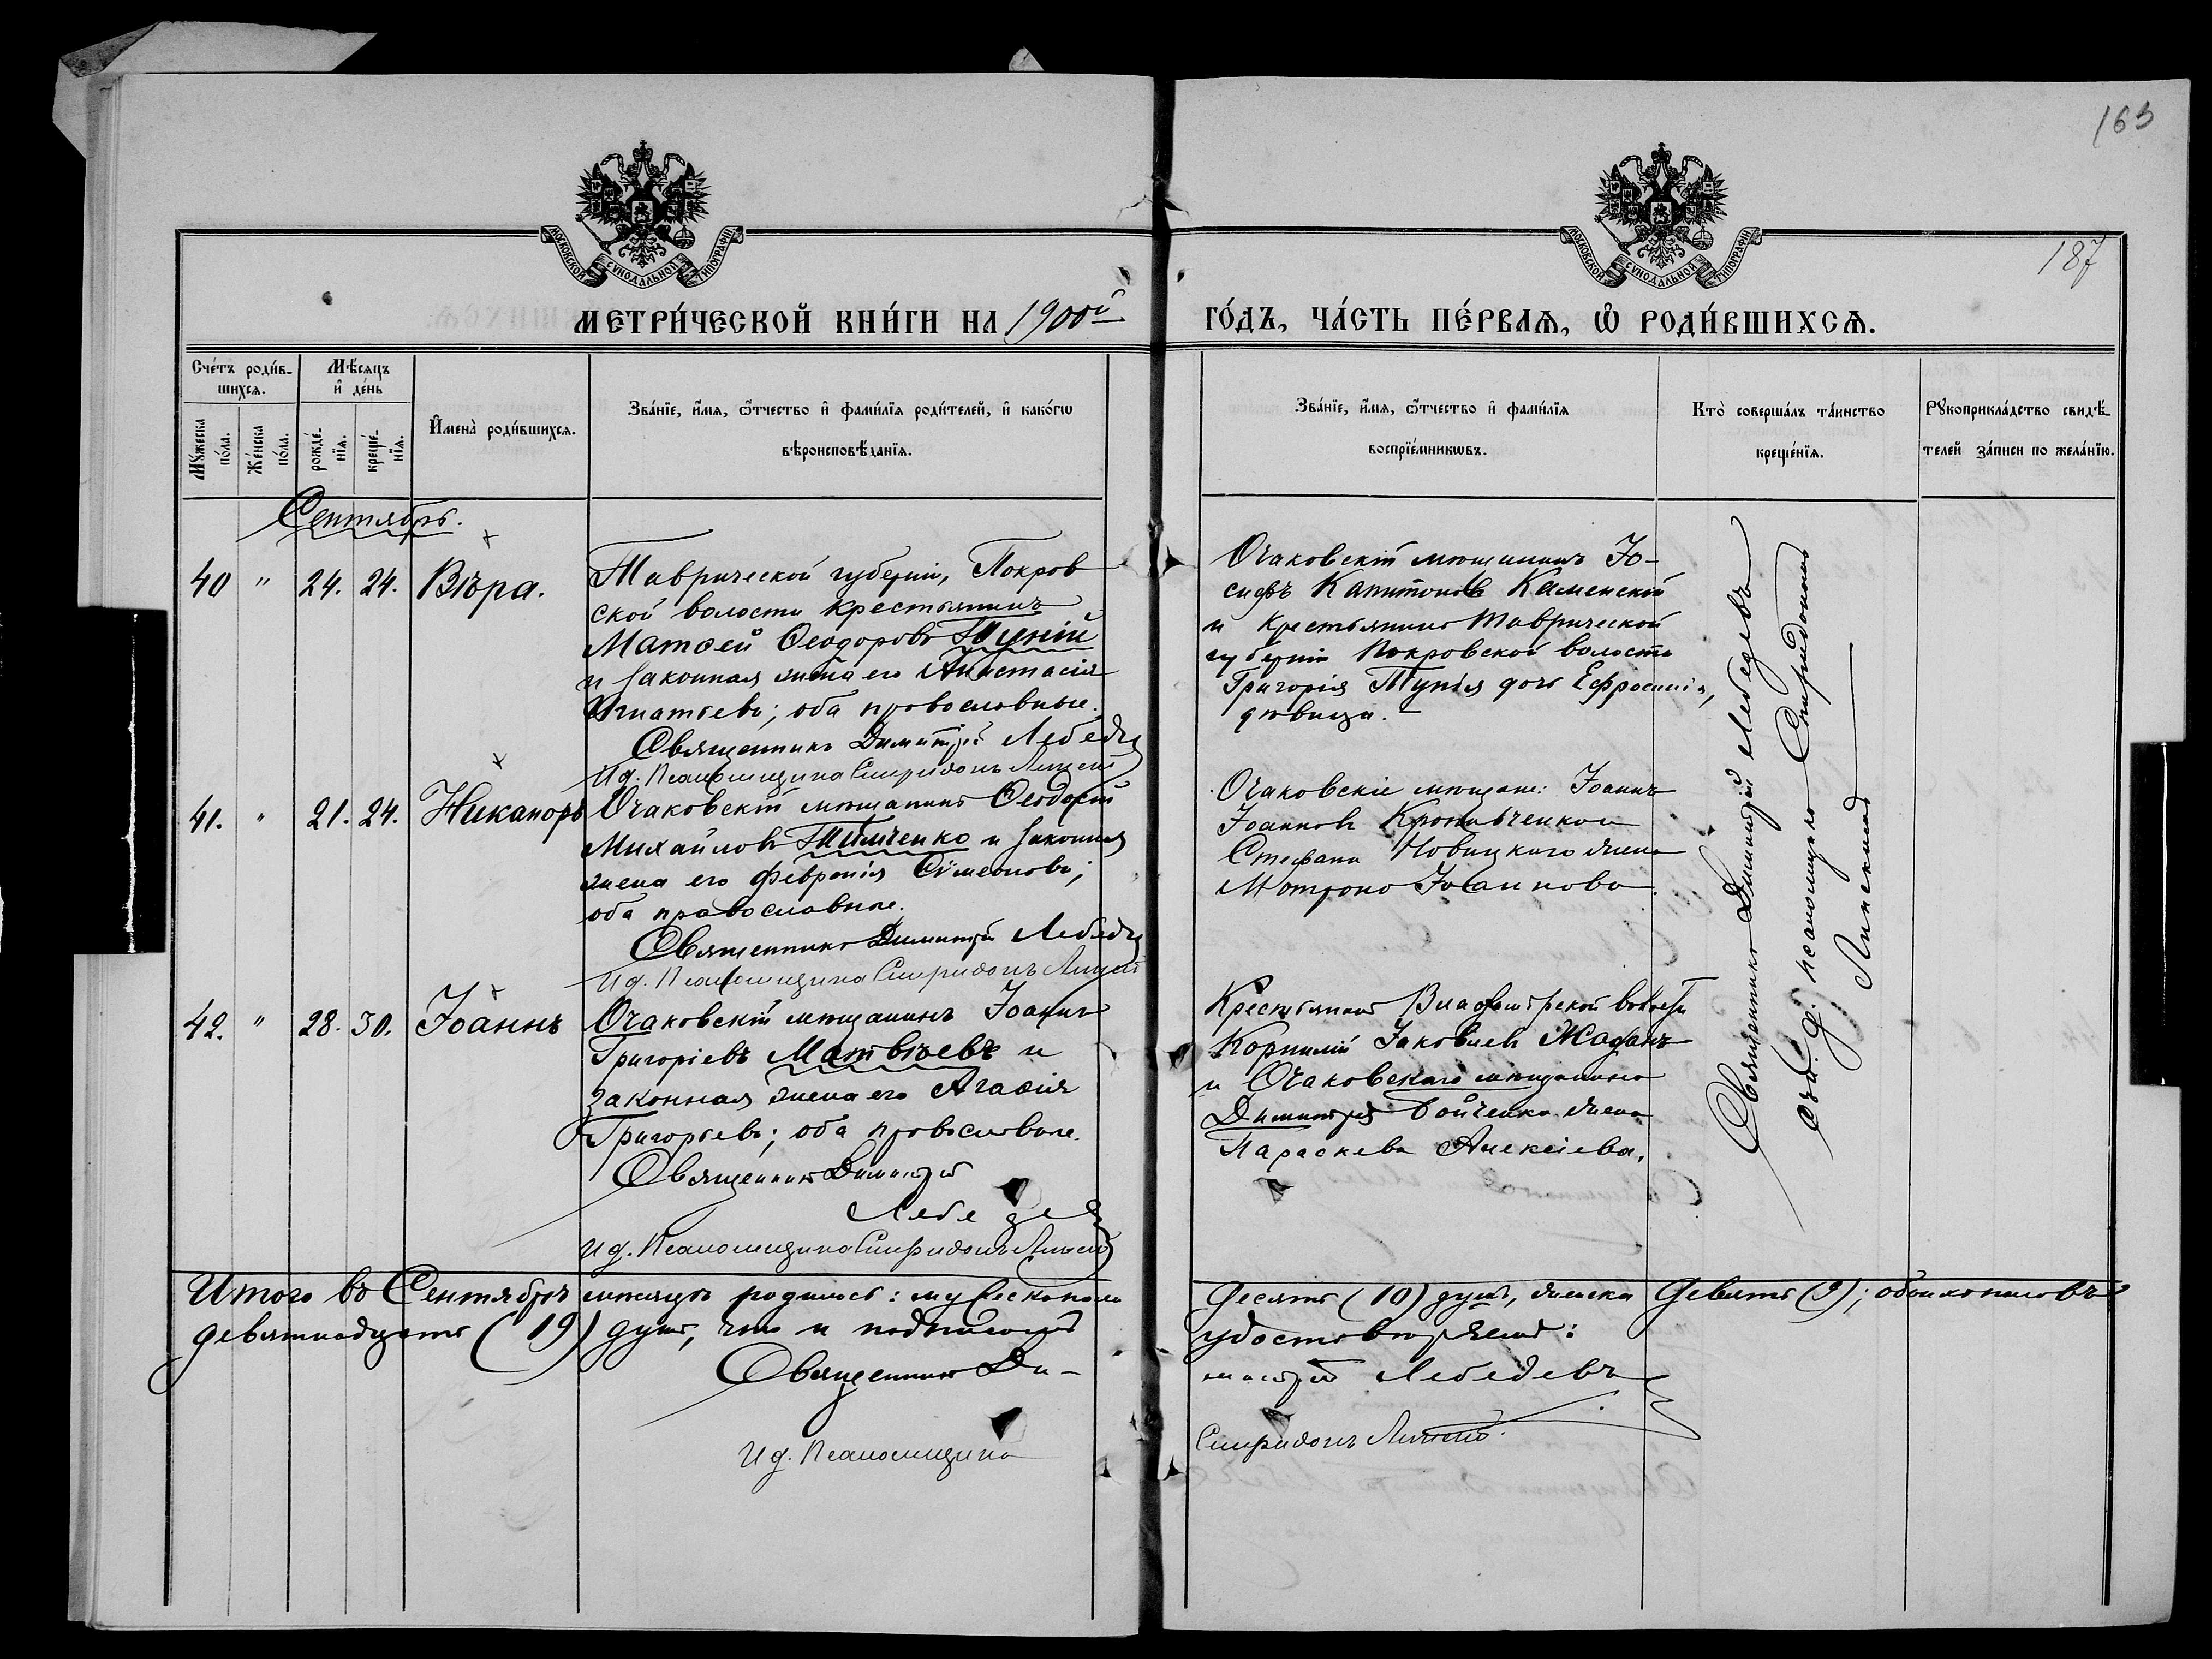 163
187
МОСКОВСКОЙ СѴНОДАЛЬНОЙ ТИПОГРАФІИ
МОСКОВСКОЙ СѴНОДАЛЬНОЙ ТИПОГРАФІИ
МЕТРИ́ЧЕСКОЙ КНИ́ГИ НА 1900й ГО́ДЪ, ЧА́СТЬ ПЕ́РВАѦ, Ѡ҆ РОДИ́ВШИХСѦ.
Сче́тъ роди́в-
шихсѧ.
Мꙋжеска по́ла.
Же́нска по́ла.
Мѣ́сѧцъ
и҆ де́нь
рожде́-
нїѧ.
креще́-
нїѧ.
И҆мена̀ роди́вшихсѧ.
Зва́нїе, и҆́мѧ, ѻ҆́тчество и҆ фами́лїѧ роди́телей, и҆ како́гѡ
вѣроисповѣ́данїѧ.
Зва́нїе, и҆́мѧ, ѻ҆́тчество и҆ фами́лїѧ
воспрїе́мникѡвъ.
Кто̀ соверша́лъ та́инство
креще́нїѧ.
Рꙋкоприкла́дство свидѣ́-
телей за́писи по жела́нїю.
Сентябрь.
40 " 24. 24. Вѣра.
Таврической губерніи, Покров
ской волости крестьянинъ
Матѳей Ѳеодоровъ Тупій
и законная жена его Анастасія
Игнатьева; оба православные.
Священникъ Димитрій Лебедевъ
И д. Псаломщика Спиридонъ
Очаковскій мѣщанинъ Іо-
сифъ Капитоновъ Каменскій
и крестьянина Таврической
губерніи Покровской волости
Григорія Тупія дочь Ефросинія,
дѣвица.
41. " 21. 24. Никаноръ
Очаковскій мѣщанинъ Ѳеодоръ
Михайловъ Тимченко и законная
жена его Февронія Сѵмеонова;
оба православные.
Священникъ Димитрій Лебедевъ
И д. Псаломщика Спиридонъ
Очаковскіе мѣщане: Іоаннъ
Іоанновъ и
Стефана Новицкаго жена
Матрона Іоаннова.
42. " 28. 30. Іоаннъ
Очаковскій мѣщанинъ Іоаннъ
Григоріевъ Матвѣевъ и
законная жена его Агаѳія
Григорьева; оба православные.
Священникъ Димитрій
Лебедевъ
И д. Псаломщика Спиридонъ
Крестьянинъ Владимірской волости
Корнилій Іаковлевъ Жаданъ
и Очаковскаго мѣщанина
Димитрія Бойченка жена
Параскева Алексіева.
Священникъ Димитрій Лебедевъ
съ и. д. псаломщика Спиридономъ
Итого въ Сентябрѣ мѣсяцѣ родилось: мужеска пола десять (10) душъ, женска девять (9); обоихъ половъ
девятнадцать (19) душъ, что и подписомъ удостовѣряемъ:
Священникъ Ди-митрій Лебедевъ
И д. Псаломщика Спиридонъ